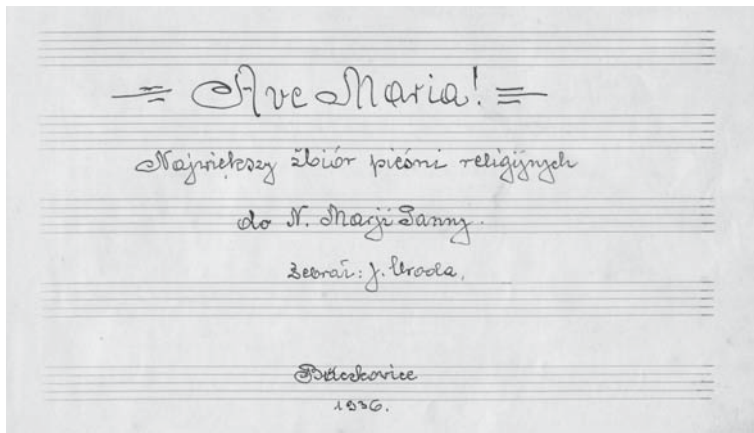 Ave Maria!
Największy zbiór pieśni religijnych
do N. Marji Panny.
Zebrał: J. Uroda.
Buczkovice
1936.